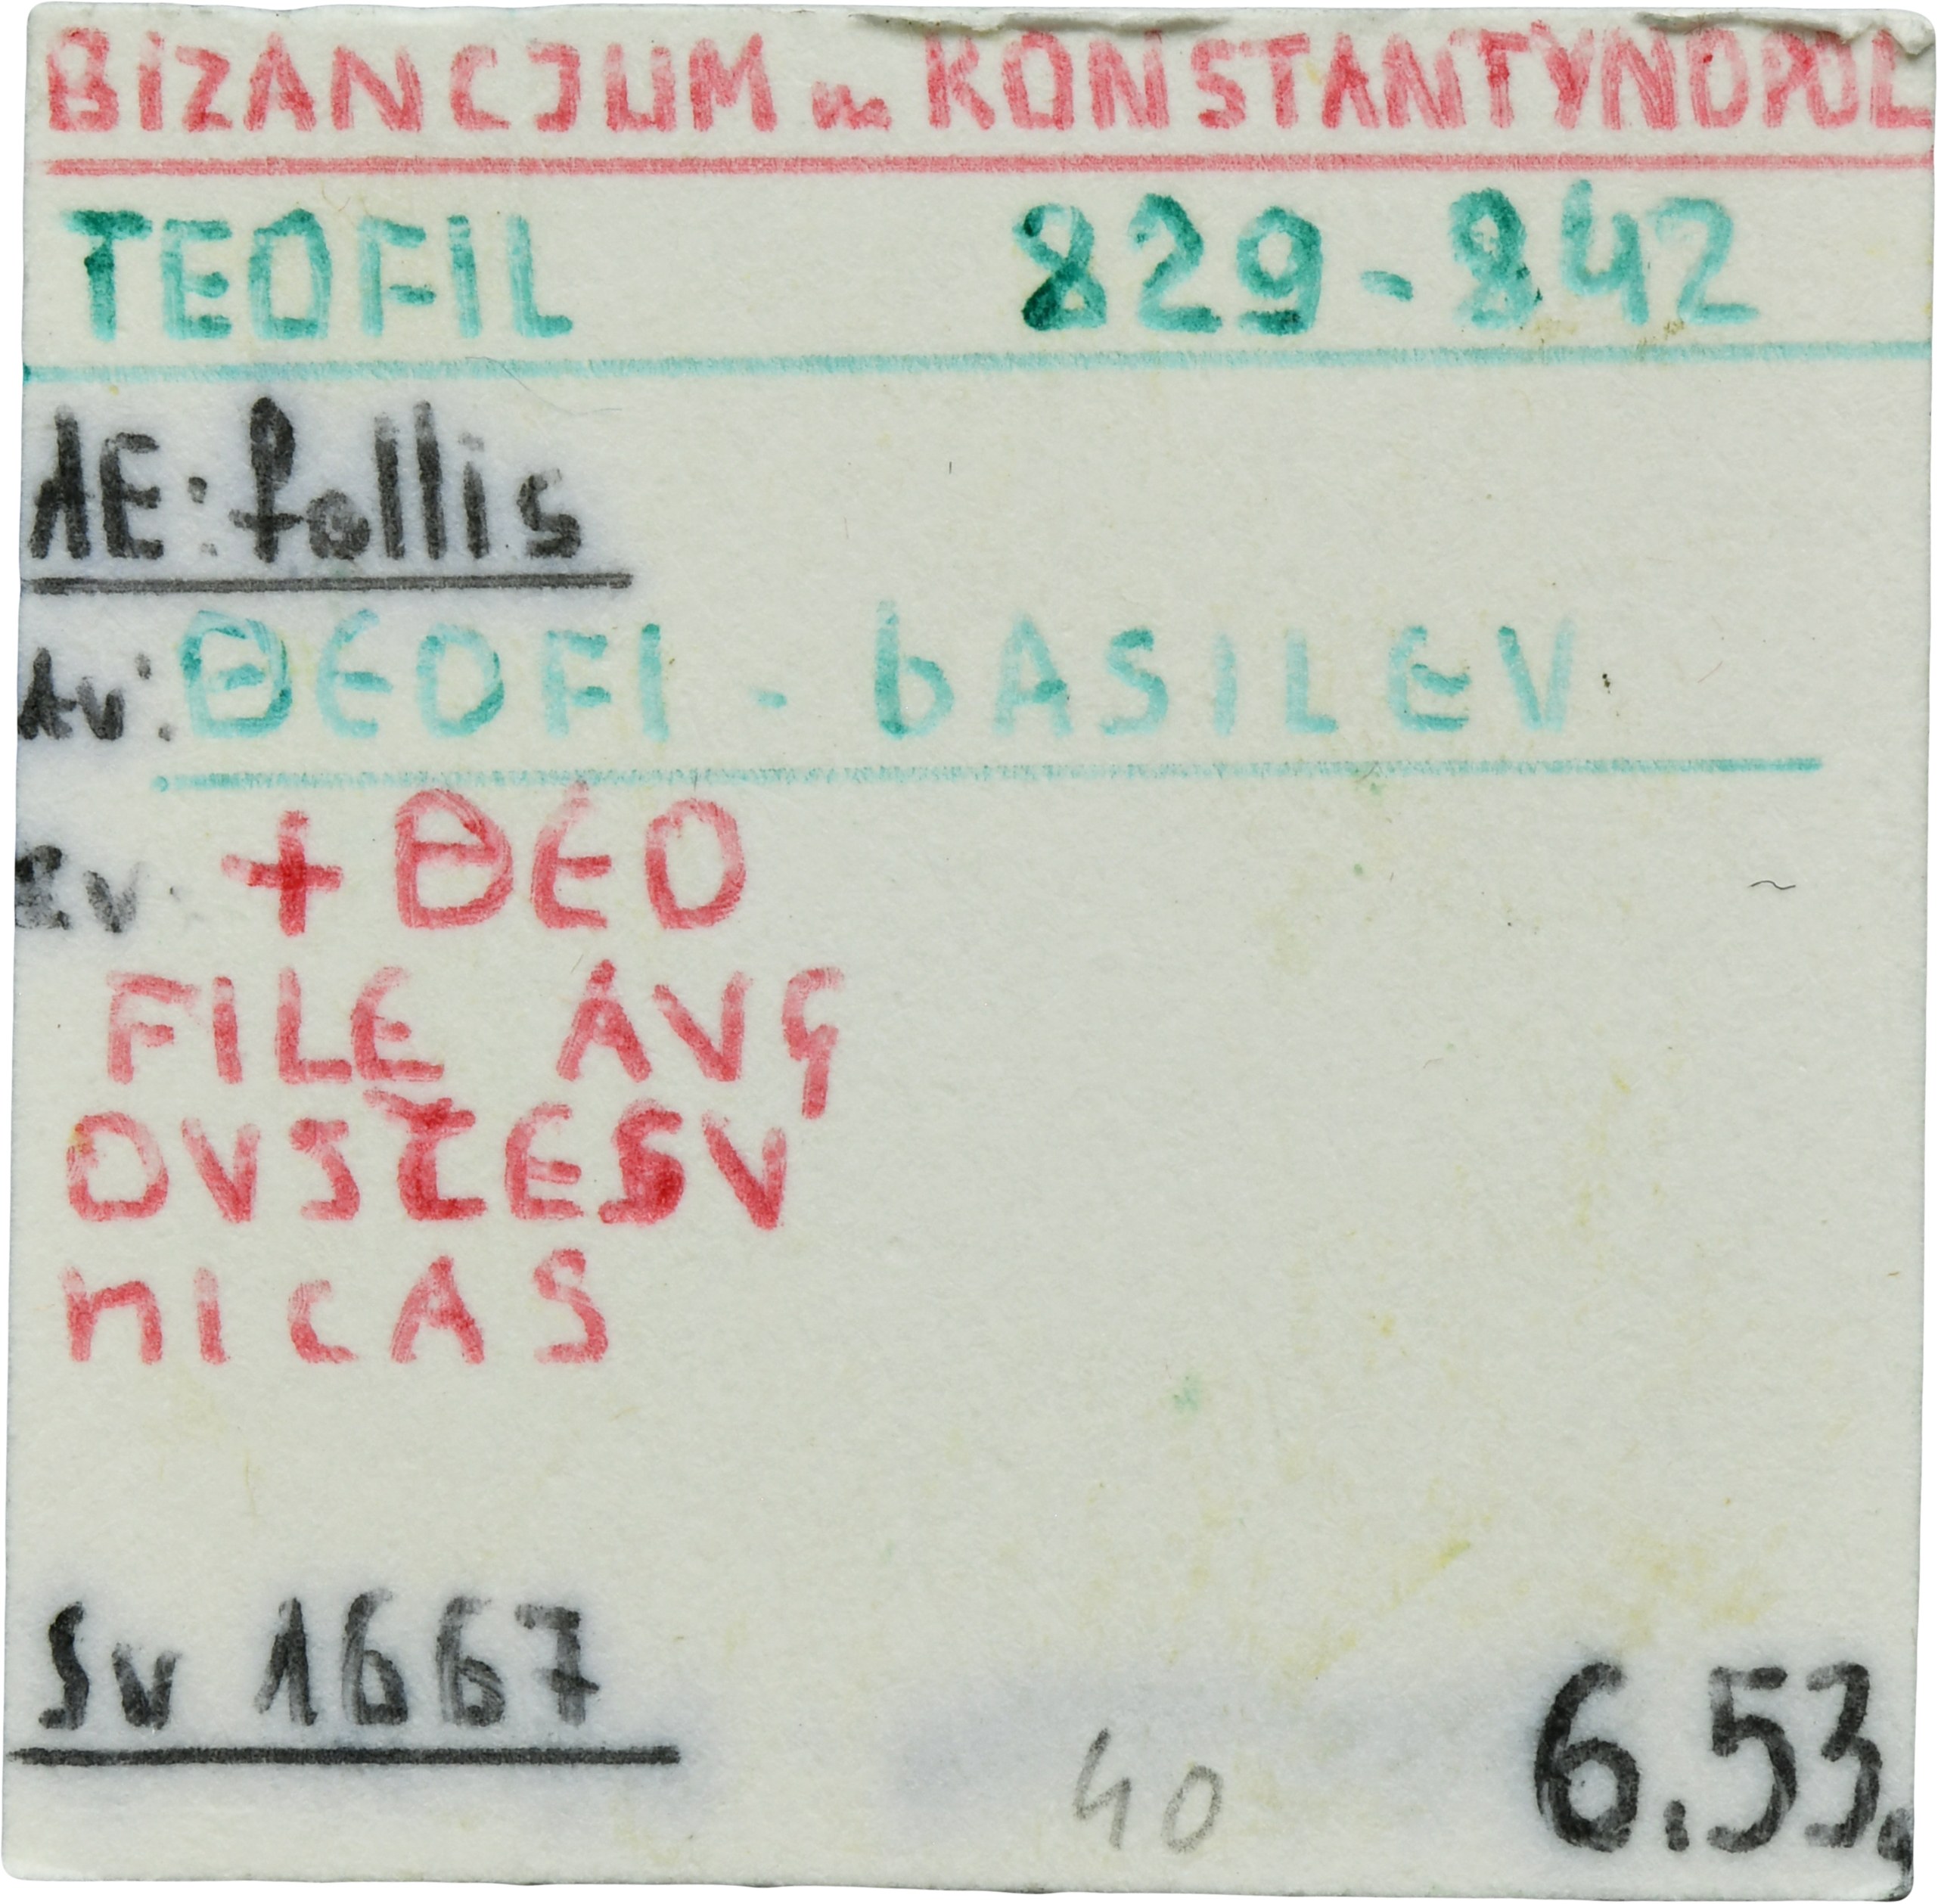 BIZANCJUM m. KONSTANTYNOPOL
TEOFIL 829-842
AE: follis
Av: ΘEOFI - bASILEV
Rv: + ΘEO
FILE AVG
OVSTESV
nICAS
Sv 1667
40 6.53g